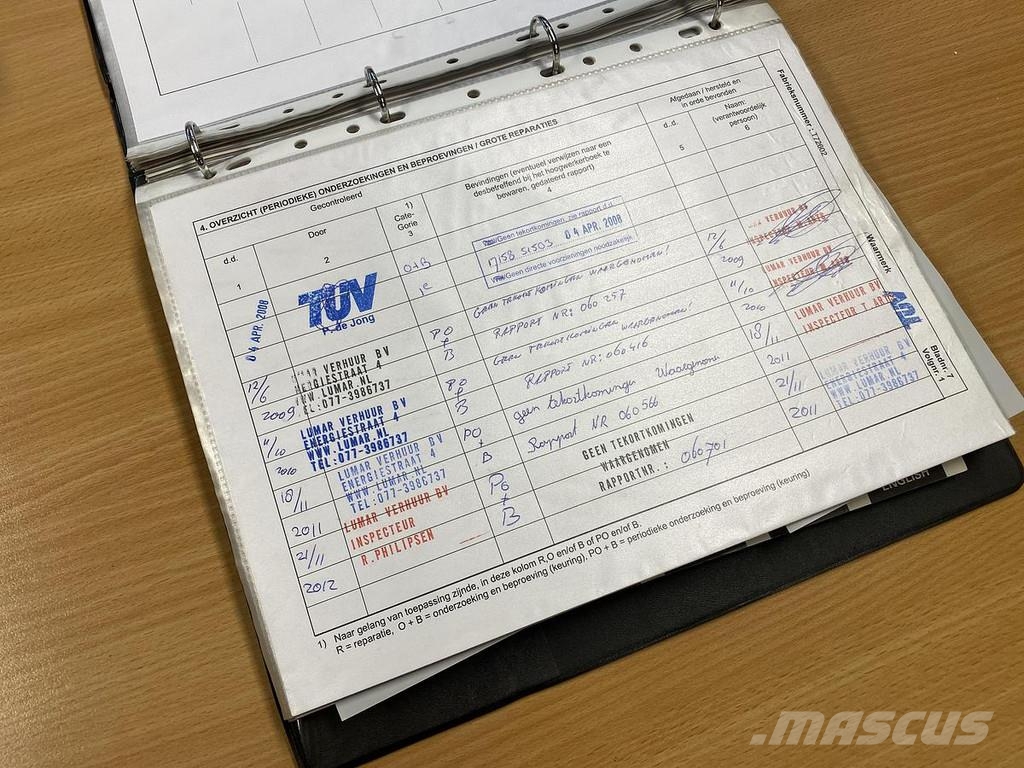 4. OVERZICHT (PERIODIEKE) ONDERZOEKINGEN EN BEPROEVINGEN / GROTE REPARATIES
Gecontroleerd
Afgedaan / hersteld en
in orde bevonden
d.d.
1
Door
2
1)
Cate-
Gorie
3
Bevindingen (eventueel verwijzen naar een
desbetreffend bij het hoogwerkerboek te
bewaren, gedateerd rapport)
4
d.d.
5
Naam:
(verantwoordelijk
persoon)
6
Fabrieksnummer :
Waarmerk
Bladnr. 7
Volgnr. 1
04 APR. 2008
TÜV
P. de Jong
O+B
Geen tekortkomingen, zie rapport d.d.
04 APR. 2008
Geen directe voorzieningen noodzakelijk
12/6
2009
LUMAR VERHUUR BV
ENERGIESTRAAT 4
WWW.LUMAR.NL
TEL:077-3986737
PO
+
B
GEEN TEKORTKOMINGEN WAARGENOMEN!
RAPPORT NR: 060 257
12/6
2009
VERHUUR BV
11/10
2010
LUMAR VERHUUR BV
ENERGIESTRAAT 4
WWW.LUMAR.NL
TEL:077-3986737
PO
+
B
GEEN TEKORTKOMINGEN WAARGENOMEN
RAPPORT NR: 060416
11/10
2010
LUMAR VERHUUR BV
18/11
2011
LUMAR VERHUUR BV
ENERGIESTRAAT 4
WWW.LUMAR.NL
TEL:077-3986737
PO
+
B
geen tekortkomingen Waargenomen
Rapport NR 060566
18/11
2011
LUMAR VERHUUR BV
21/11
2012
LUMAR VERHUUR BV
INSPECTEUR
R.PHILIPSEN
PO
+
B
GEEN TEKORTKOMINGEN
WAARGENOMEN
RAPPORTNR.: 060701
21/11
2011
LUMAR VERHUUR BV
ENERGIESTRAAT 4
WWW.LUMAR.NL
TEL:077-3986737
1) Naar gelang van toepassing zijnde, in deze kolom R,O en/of B of PO en/of B.
R = reparatie, O + B = onderzoeking en beproeving (keuring), PO + B = periodieke onderzoeking en beproeving (keuring)
ENGLISH
.MASCUS